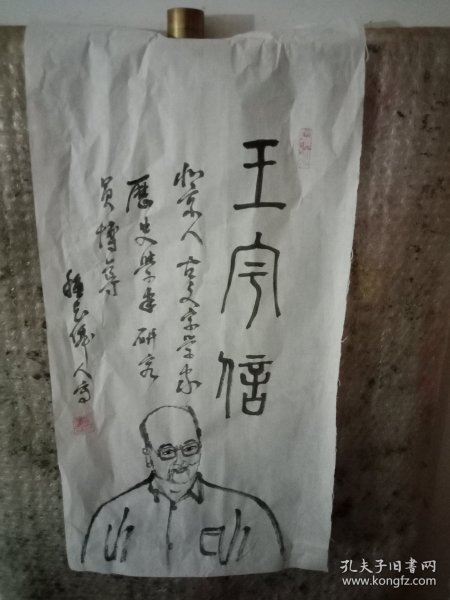 王宇信
北京人古文字学家
歷史學家研究
員博导
人写
孔夫子旧书网
www.kongfz.com